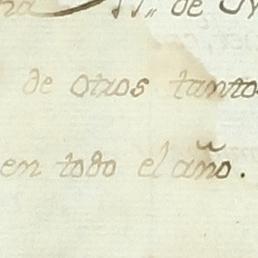 de
de otros tanto
en todo el año.